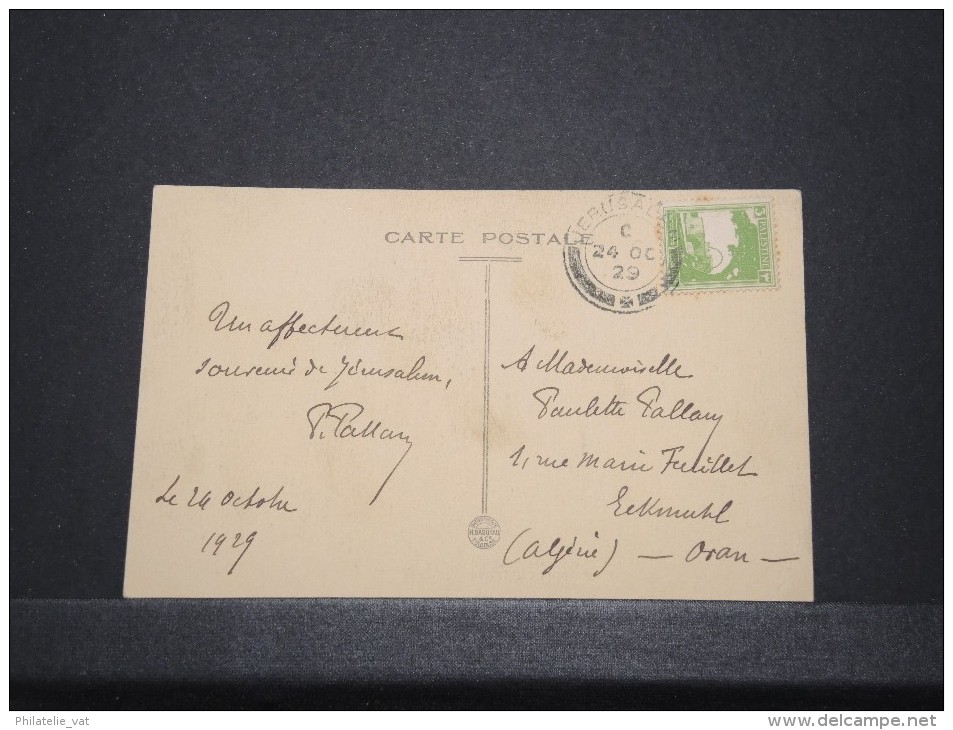 CARTE POSTALE
JERUSAL
C
24 OC
29
PALESTINE
3
Un affectueux
souvenir de Jérusalem,
P. Pallary
Le 24 Octobre
1929
A Mademoiselle
Paulette Pallary
1, rue Marie Feuillet
Eckmuhl
(Algérie) — Oran —
Philatelie_vat
www.delcampe.net